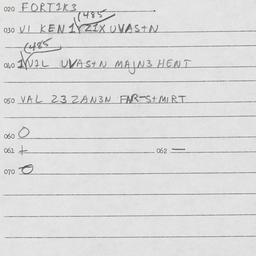 020 FORTIK3
(485
030 VI KEN 1 Y21X UVAS+N
(485
040 1 VIL UVAS+N MAJN3 HENT
050 VAL 23 ZAN3N FNR-S+MIRT
060 O
061 + 062 —
070